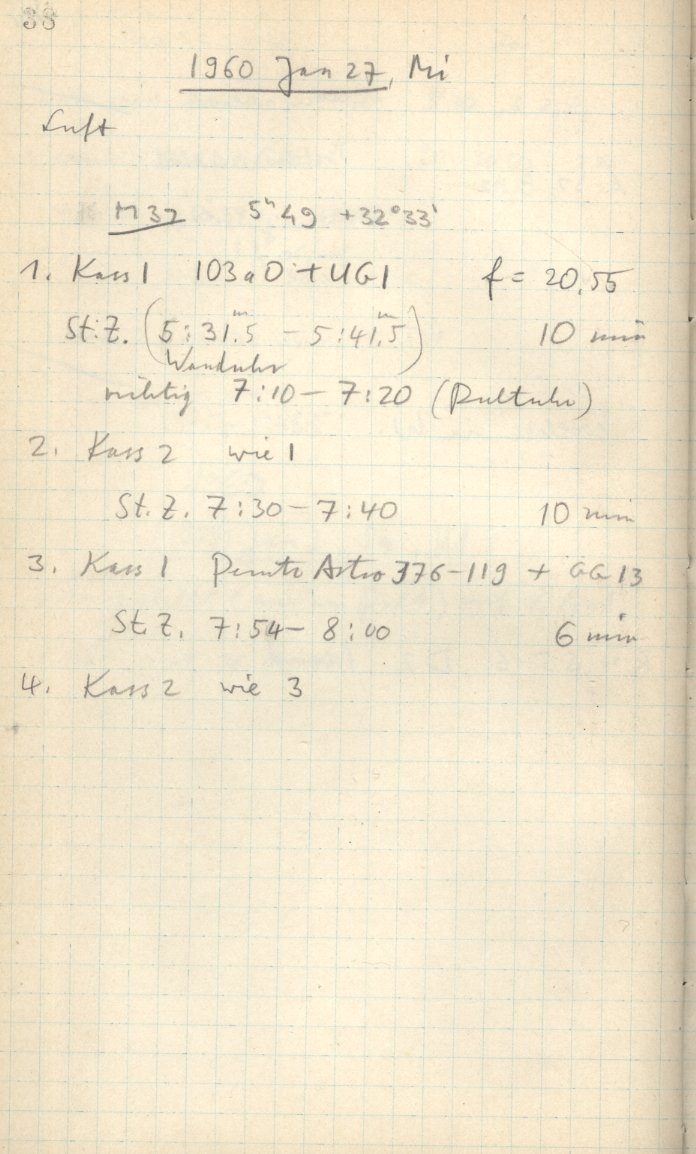 38
1960 Jan 27, Mi
Luft
M 37 5ʰ 49 +32°33'
1. Kass 1 103aO + UG1 f = 20,55
St.Z. (5:31,5ᵐ – 5:41,5ᵐ) 10 min
Wanduhr
richtig 7:10 – 7:20 (Pultuhr)
2. Kass 2 wie 1
St.Z. 7:30 – 7:40 10 min
3. Kass 1 Perutz Astro 376-119 + GG 13
St.Z. 7:54 – 8:00 6 min
4. Kass 2 wie 3